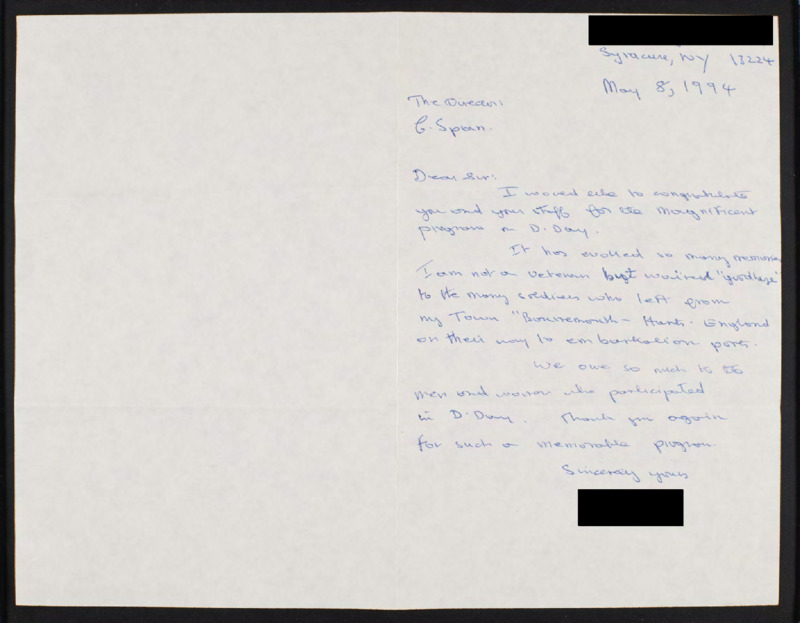 Syracuse, NY 13224
May 8, 1994
The Director:
C. Span.
Dear Sir:
I would like to congratulate
you and your staff for the magnificent
program on D. Day.
It has evoked so many memories
I am not a veteran but waived "goodbye"
to the many soldiers who left from
my Town "Bournemouth - Hants. England
on their way to embarkation ports.
We owe so much to the
men and women who participated
in D. Day. Thank you again
for such a memorable program.
Sincerely yours